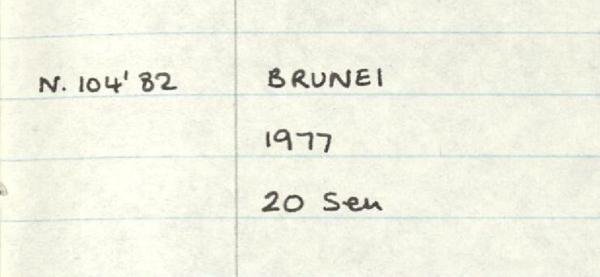 N. 104'82 BRUNEI
1977
20 Sen